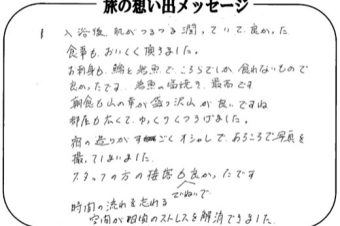 旅の想い出メッセージ
入浴後、肌がつるつる潤っていて良かった
食事も、おいしく頂きました。
お刺身も、鯛を 魚で、ころらでしか、食れないもので
良かったです。 魚の塩焼き、最高です
朝食も山の幸が盛り沢山が良いですね
部屋も広くて、ゆっくりくつろげました。
宿の造りがすごくオシャレで、あちこちで写真を
撮ってしまいました
スタッフの方の接客も良かったです
ていねいで
時間の流れを忘れる
空間が日頃のストレスを解消できました